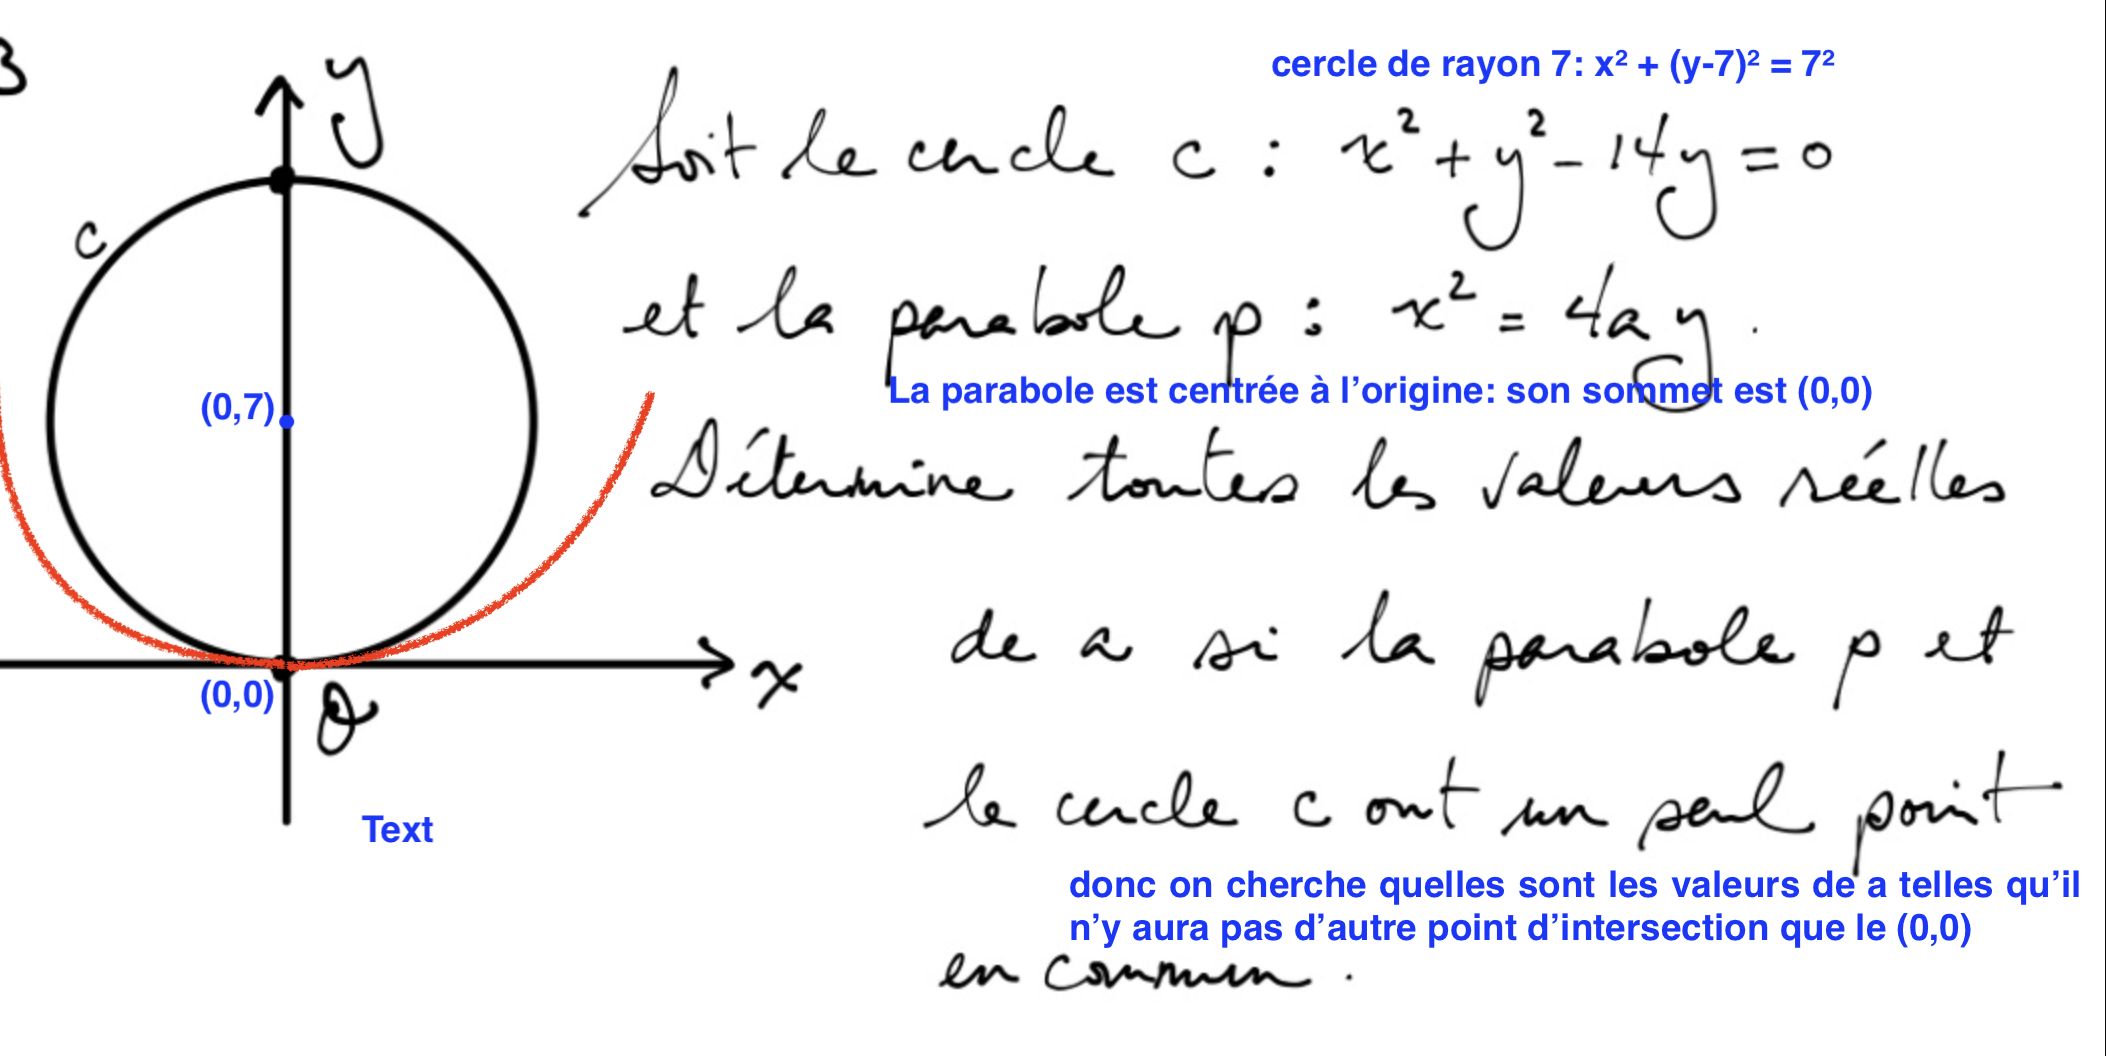 3
y
cercle de rayon 7: x² + (y-7)² = 7²
Soit le cercle c : x² + y² - 14y = 0
c
et la parabole p : x² = 4ay.
La parabole est centrée à l'origine: son sommet est (0,0)
(0,7)
Détermine toutes les valeurs réélles
de a si la parabole p et
x
(0,0)
O
le cercle c ont un seul point
Text
donc on cherche quelles sont les valeurs de a telles qu'il
n'y aura pas d'autre point d'intersection que le (0,0)
en commun.